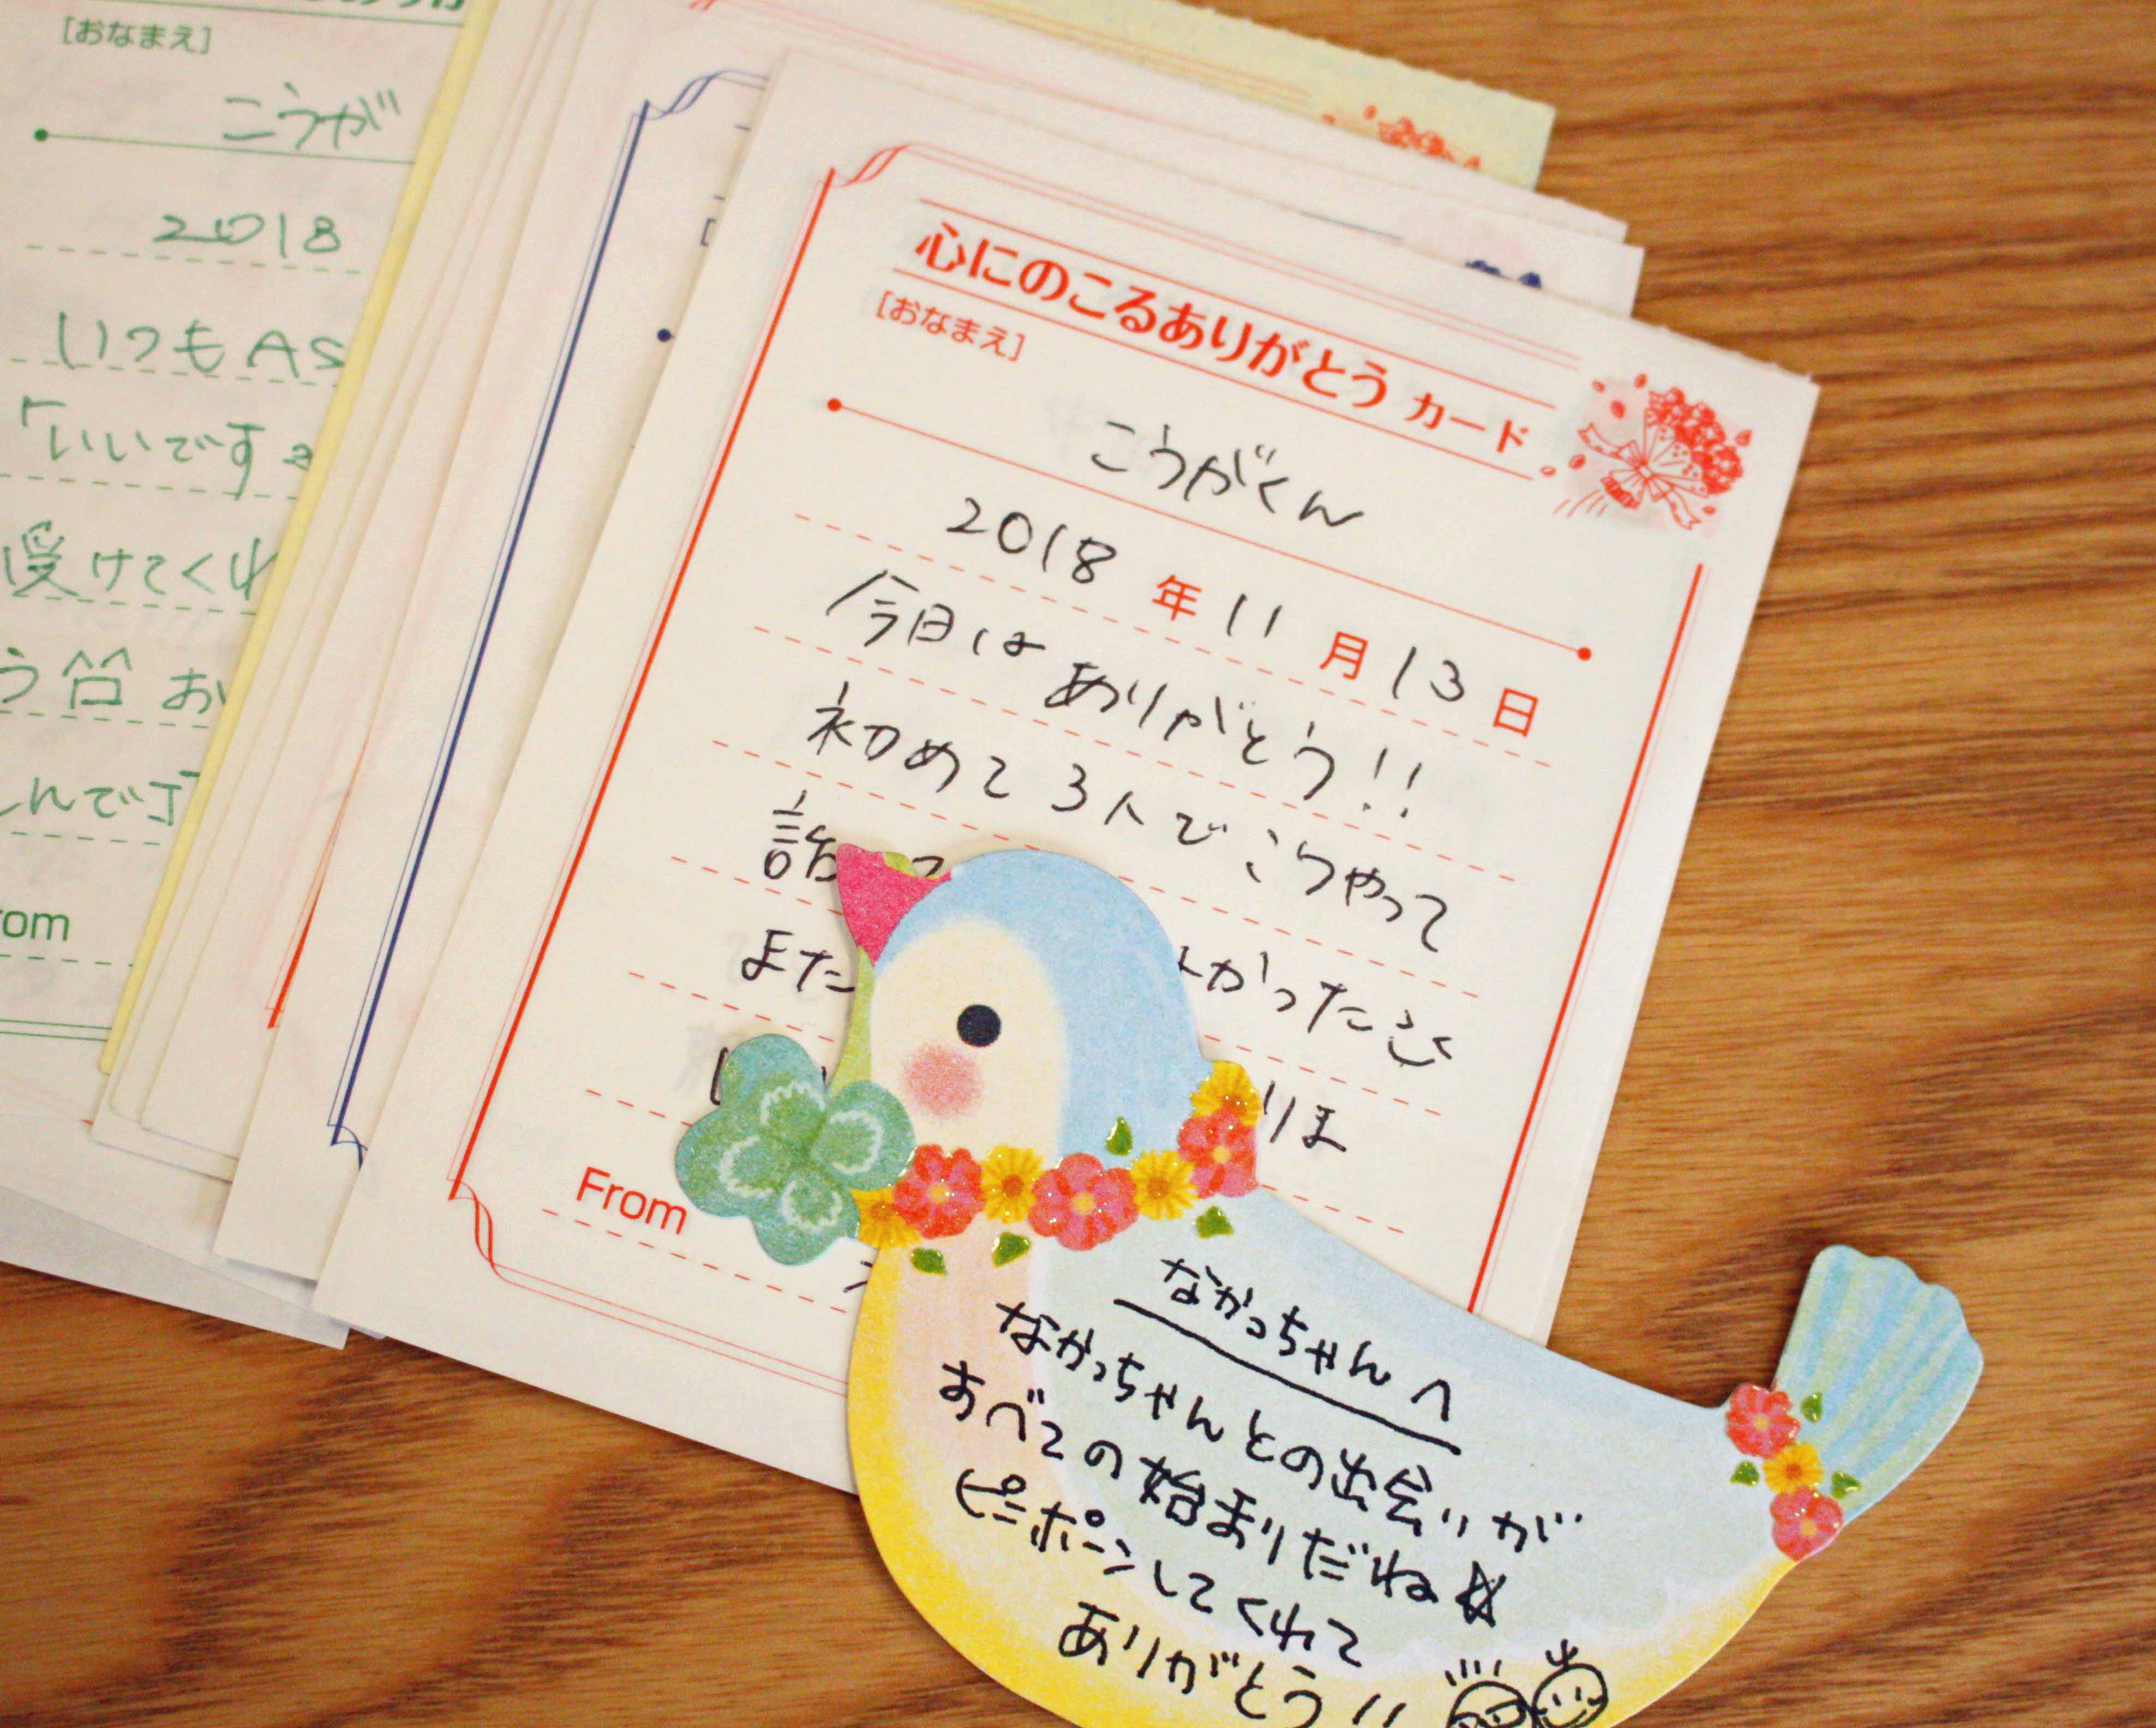 [おなまえ]
こうが
2018
いつもAS
「いいです
受けてくれ
う
んで
om
心にのこるありがとう カード
[おなまえ]
こうがくん
2018 年 11 月 13 日
今日はありがとう!!
初めて3人でこうやって
話
また かった
りま
From
なかっちゃんへ
なかっちゃんとの出会いが
すべての始まりだね☆
ピンポーンしてくれて
ありがとう!!